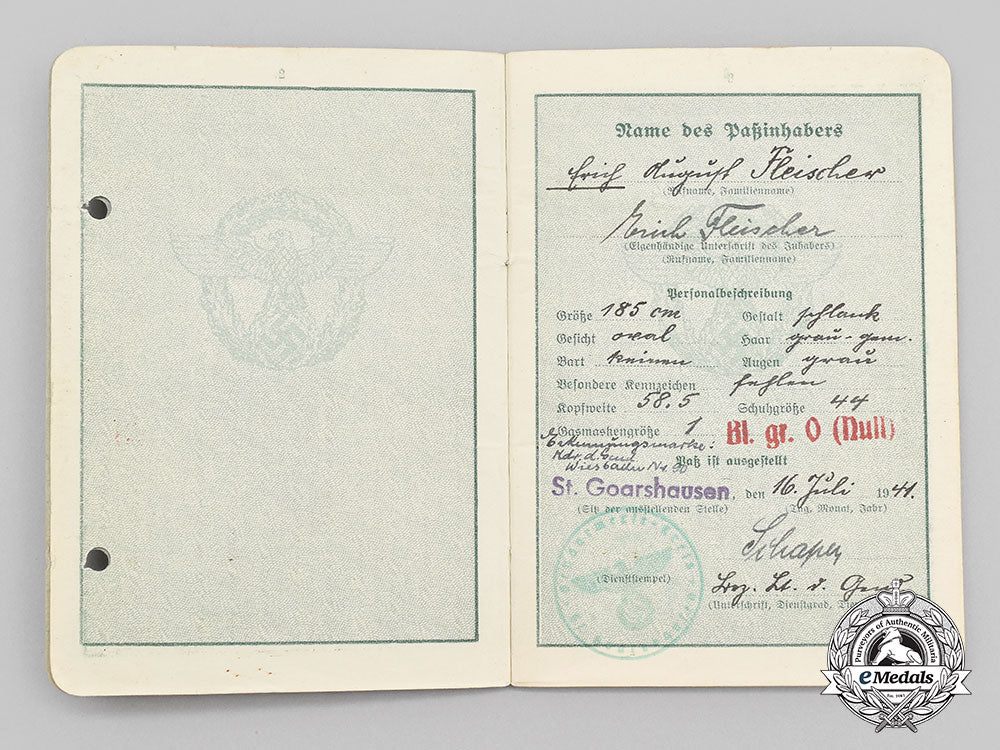 2
2
Name des Paßinhabers
Erich August Fleischer
(Rufname, Familienname)
Erich Fleischer
(Eigenhändige Unterschrift des Inhabers)
(Rufname, Familienname)
Personalbeschreibung
Größe 185 cm Gestalt schlank
Gesicht oval Haar grau-gem.
Bart keinen Augen grau
Besondere Kennzeichen fehlen
Kopfweite 58.5 Schuhgröße 44
Gasmaskengröße 1 Bl. gr. O (Null)
Erkennungsmarke:
Kdr. d. Gend.
Wiesbaden No
Paß ist ausgestellt
St. Goarshausen, den 16. Juli 1941.
(Sitz der ausstellenden Stelle) (Tag, Monat, Jahr)
Schaper
(Dienststempel)
Bez. Lt. d. Gend
(Unterschrift, Dienstgrad,
Purveyors of Authentic Militaria
eMedals